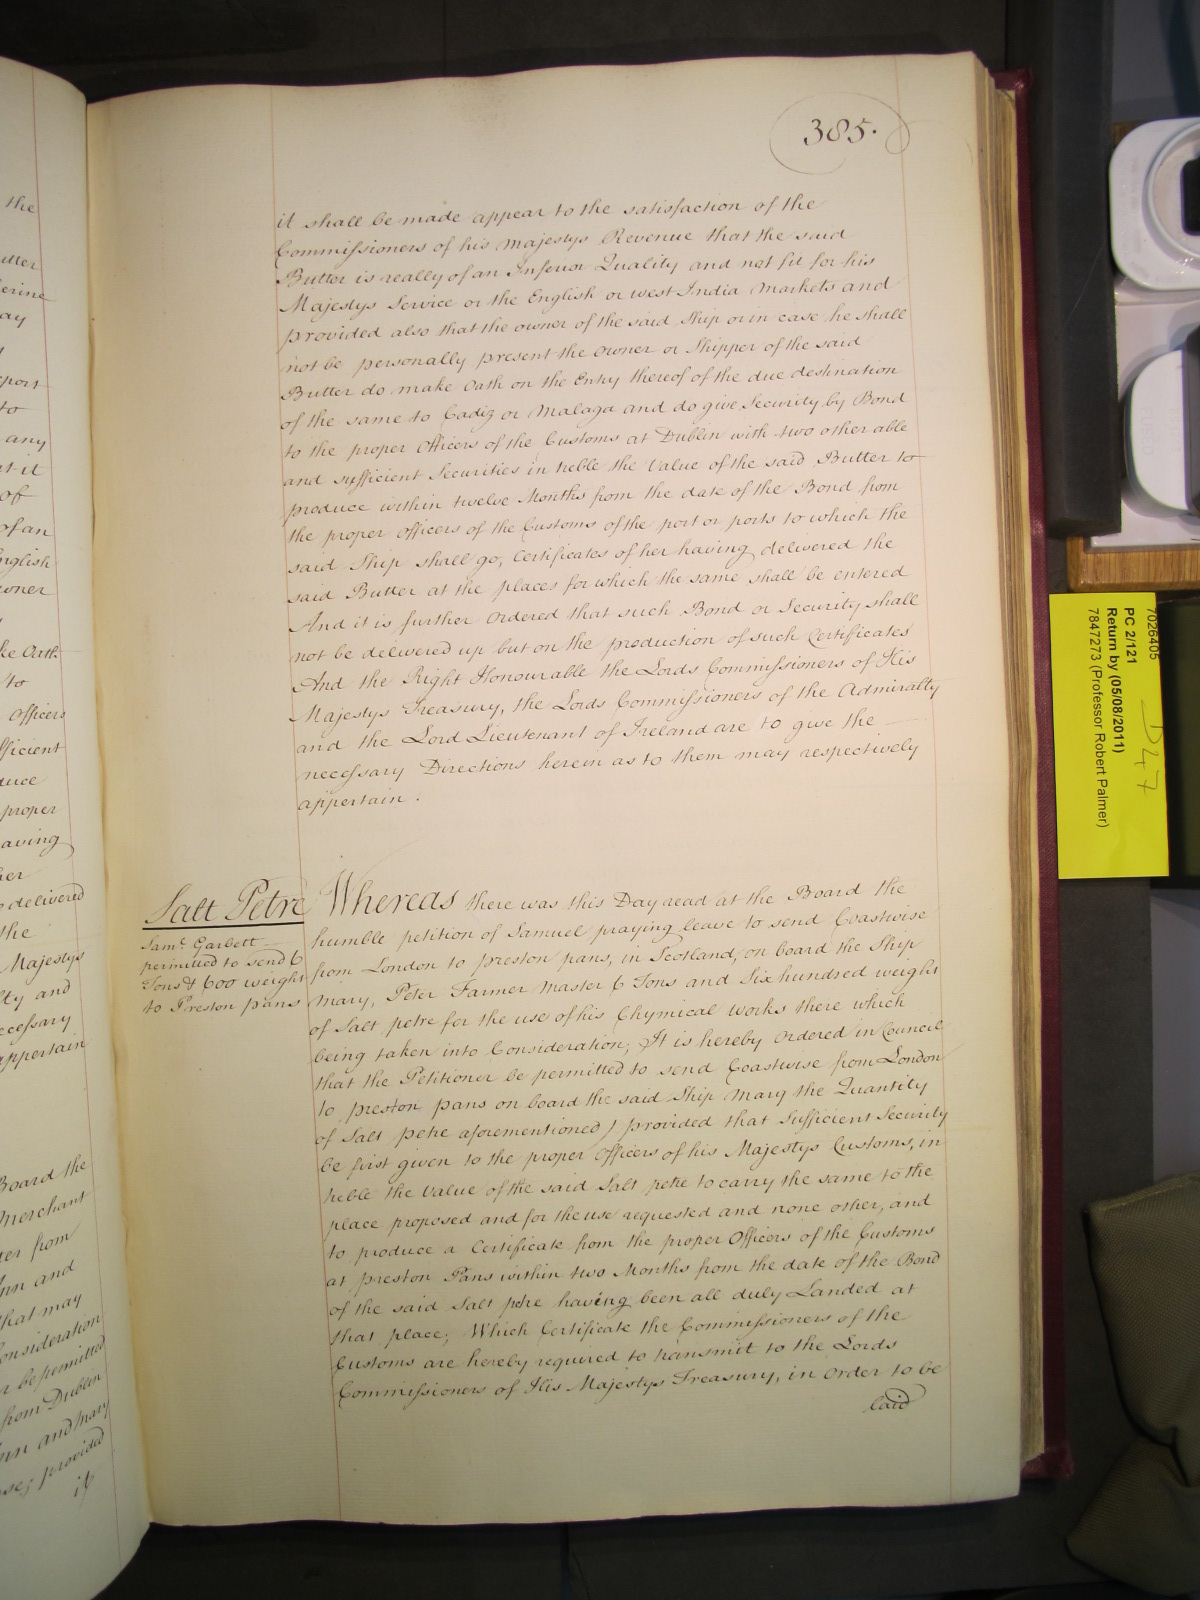 385.
it shall be made appear to the satisfaction of the
Commissioners of his Majestys Revenue that the said
Butter is really of an Inferior Quality and not fit for his
Majestys Service or the English or West India Markets and
provided also that the owner of the said Ship or in case he shall
not be personally present the owner or Shipper of the said
Butter do make Oath on the Entry thereof of the due destination
of the same to Cadiz or Malaga and do give Security by Bond
to the proper Officers of the Customs at Dublin with two other able
and sufficient Securities in treble the Value of the said Butter to
produce within twelve Months from the date of the Bond from
the proper officers of the Customs of the port or ports to which the
said Ship shall go, Certificates of her having delivered the
said Butter at the places for which the same shall be entered
And it is further Ordered that such Bond or Security shall
not be delivered up but on the production of such Certificates
And the Right Honourable the Lords Commissioners of His
Majestys Treasury, the Lords Commissioners of the Admiralty
and the Lord Lieutenant of Ireland are to give the
necessary Directions herein as to them may respectively
appertain.
Salt Petre
Saml. Garbett
permitted to send 6
Tons & 600 weight
to Preston pans
Whereas there was this Day read at the Board the
humble petition of Samuel praying leave to send Coastwise
from London to Preston pans, in Scotland, on board the Ship
Mary, Peter Farmer Master 6 Tons and Six hundred weight
of Salt petre for the use of his Chymical works there which
being taken into Consideration; It is hereby Ordered in Council
that the Petitioner be permitted to send Coastwise from London
to Preston pans on board the said Ship Mary the Quantity
of Salt petre aforementioned, provided that Sufficient Security
be first given to the proper Officers of his Majestys Customs, in
treble the Value of the said Salt petre to carry the same to the
place proposed and for the use requested and none other, and
to produce a Certificate from the proper Officers of the Customs
at Preston Pans within two Months from the date of the Bond
of the said Salt petre having been all duly Landed at
that place; Which Certificate the Commissioners of the
Customs are hereby required to transmit to the Lords
Commissioners of His Majestys Treasury, in Order to be
laid
7026405
PC 2/121
Return by (05/08/2011)
7847273 (Professor Robert Palmer)
D47
the
any
of
of an
English
to
Officers
proper
delivered
the
Majestys
and
necessary
appertain
Board the
Merchant
from
and
that may
Consideration
be permitted
from Dublin
and Mary
provided
it